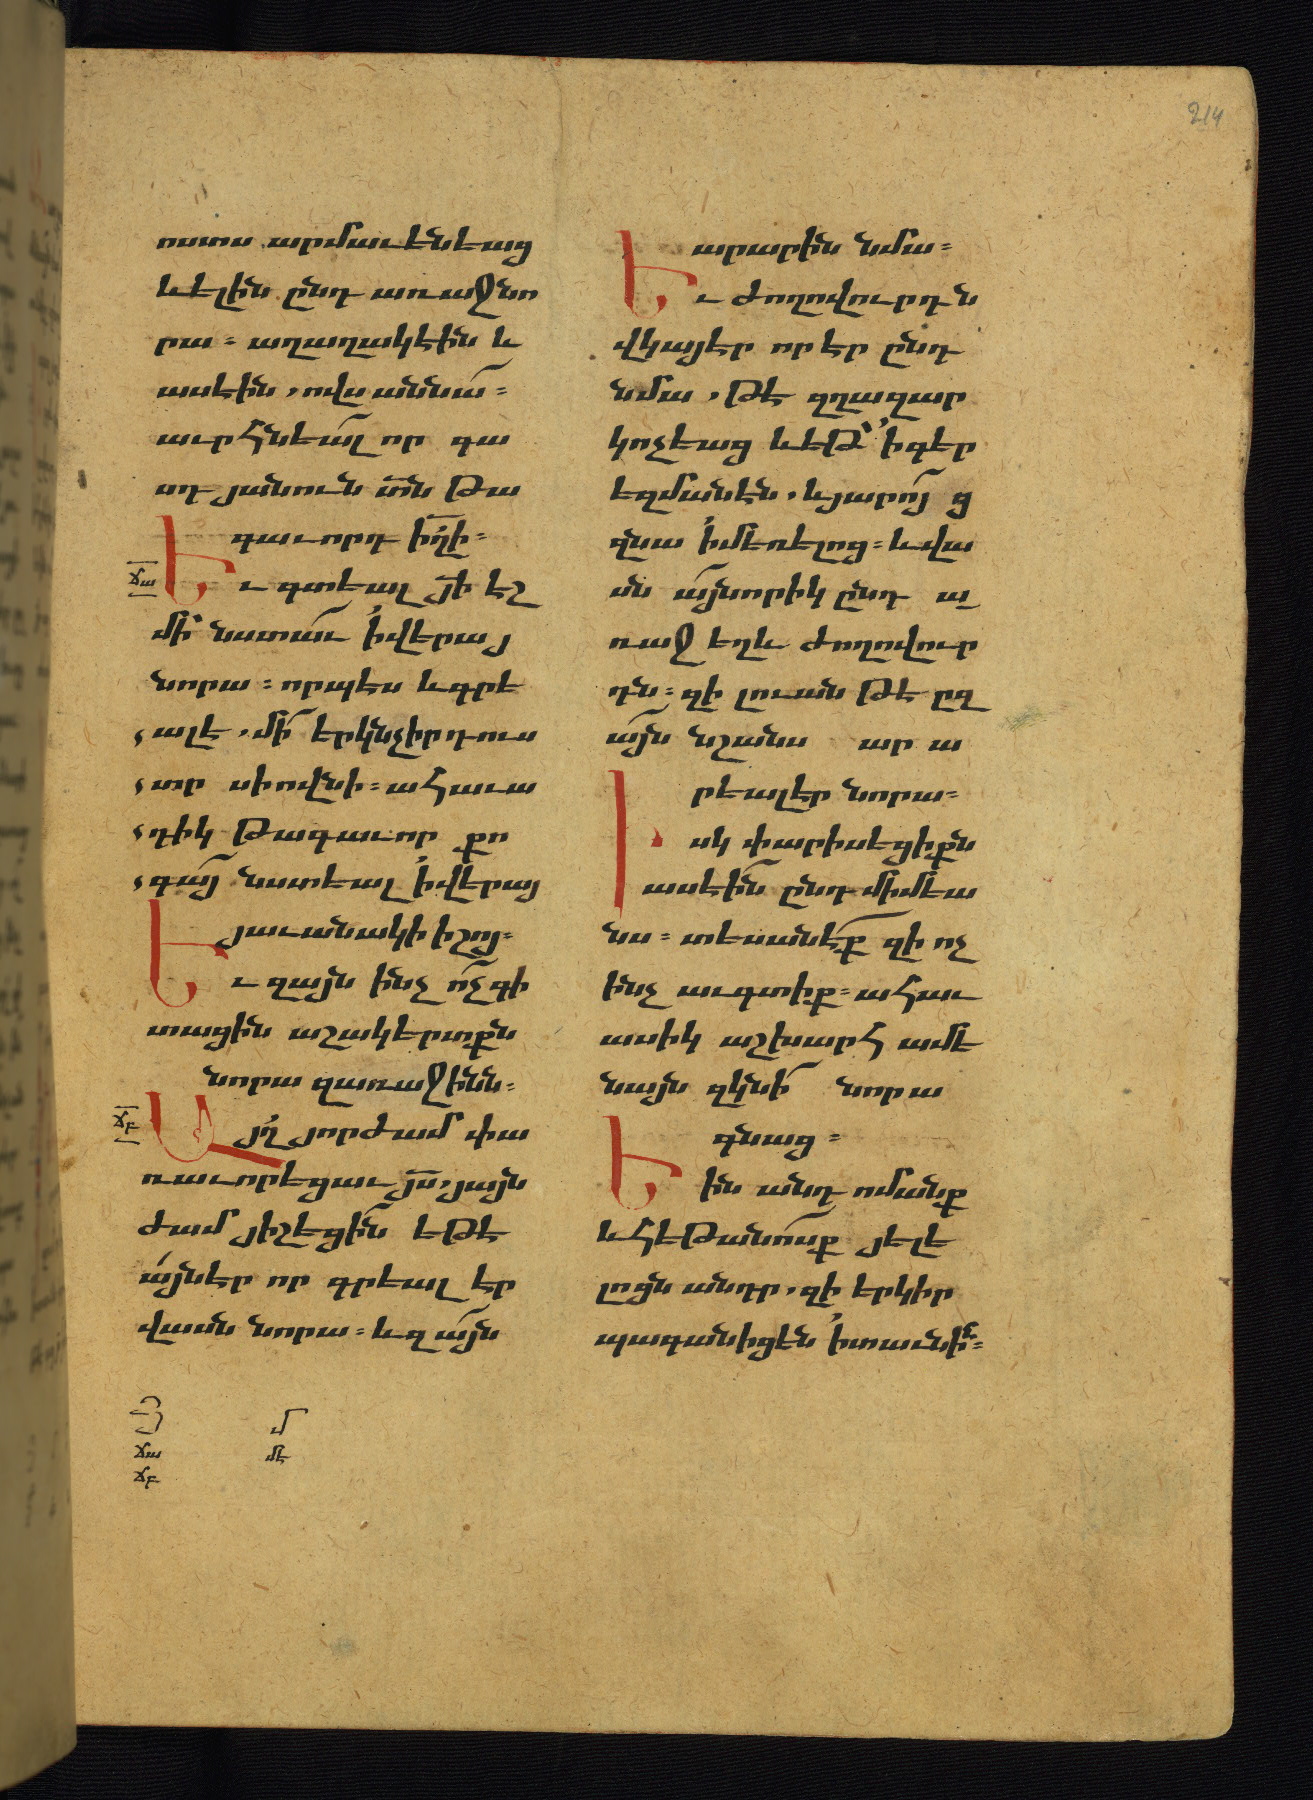 214
ոստս արմաւէնեաց
և ելին ընդ առաջ նո
րա ։ աղաղակէին և
ասէին , ովսաննա ։
աւրհնեալ որ գա
ս դ յանուն տն թա
գաւորդ իղի ։
ճա
Եւ գտեալ յի էշ
մի նստաւ ի վերայ
նորա ։ որպես և գրե
ալ է , մի երկնչիր դուս
տր սիովնի ։ ահաւա
դիկ թագաւոր քո
գայ նստեալ ի վերայ
յաւանակի իշոյ ։
Եւ զայն ինչ ոչ գի
տացին աշակերտքն
նորա զառաջինն ։
ճբ
Այղ յորժամ փա
ռաւորեցաւ յս , յայն
ժամ յիշեցին եթե
այն էր որ գրեալ էր
վասն նորա ։ և զայն
արարին նմա ։
Եւ ժողովուրդն
վկայեր որ էր ընդ
նմա , թե զղազար
կոչեաց և եթ ի գեր
եզմանէն , և յարոյ ց
զնա ի մեռելոց ։ և վա
սն այնորիկ ընդ ա
ռաջ եղև ժողովուր
դն ։ զի լուան թե ըզ
այն նշանս արա
րեալ էր նորա ։
Իսկ փարիսեցիքն
ասեին ընդ միմեա
նս ։ տեսանեք զի ոչ
ինչ աւգտիք ։ ահաւ
ասիկ աշխարհ ամե
նայն զկնի նորա
գնաց ։
Եին անդ ոմանք
և հեթանոսք յելե
լոցն անդր , զի երկիր
պագանիցեն ի տաւնի ։
ճա
ճբ
մ
մե